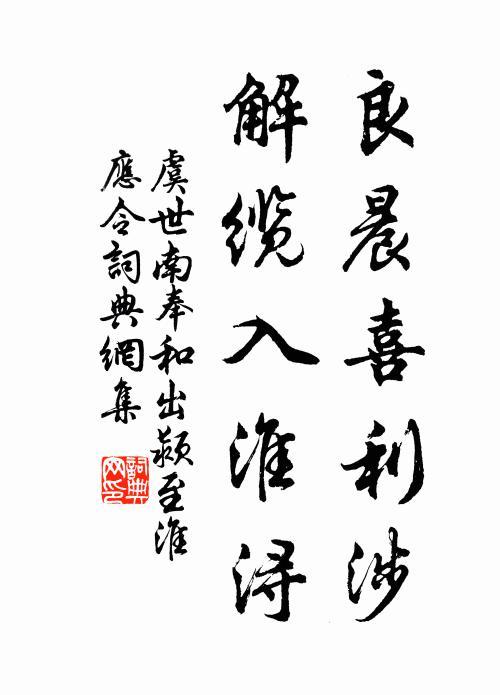 良晨喜利涉
解缆入淮浔
虞世南奉和出颍至淮
應令詞典網集
詞典
网印